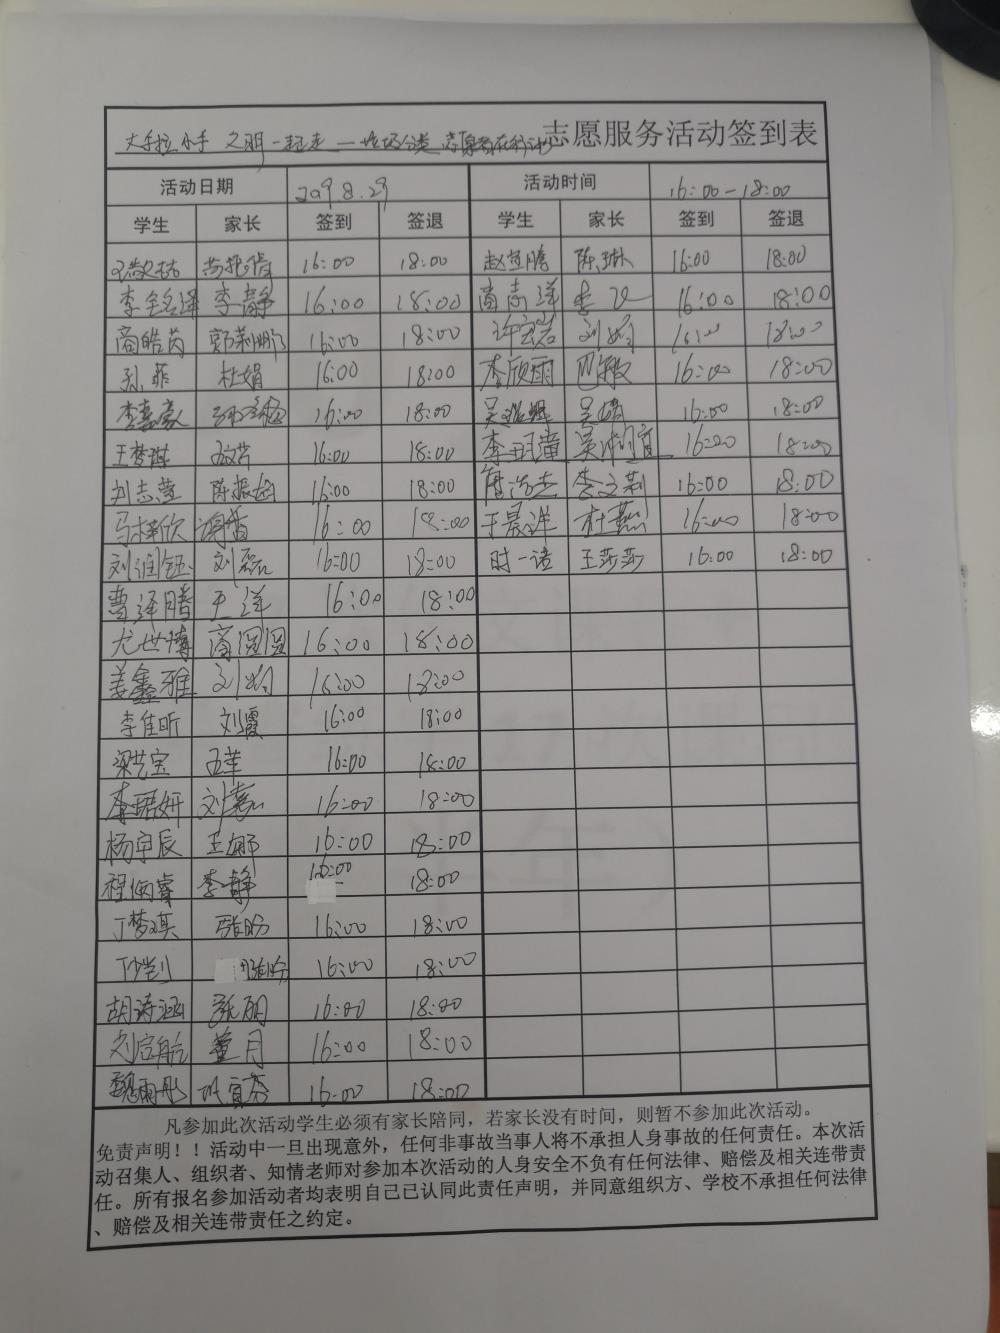 大手拉小手 之明一起走—垃圾分类 志愿者在行动 志愿服务活动签到表
活动日期 2019.8.29 活动时间 16:00-18:00
学生 家长 签到 签退 学生 家长 签到 签退
16:00 18:00 陈琳 16:00 18:00
李静 16:00 18:00 商志洋 16:00 18:00
商皓芮 郭莉鹏 16:00 18:00 许宏岩 刘娟 16:00 18:00
孙菲 杜娟 16:00 18:00 李欣雨 巴敏 16:00 18:00
李嘉豪 16:00 18:00 吴靖 16:00 18:00
王梦琪 16:00 18:00 李玥潼 16:00 18:00
刘志莹 16:00 18:00 李文莉 16:00 18:00
马梓欣 16:00 18:00 于晨洋 杜燕 16:00 18:00
刘润钰 刘磊 16:00 18:00 时一诺 王莎莎 16:00 18:00
曹泽腾 王洋 16:00 18:00
尤世博 商圆圆 16:00 18:00
姜鑫雅 刘娟 16:00 18:00
李佳昕 刘霞 16:00 18:00
梁艺宝 16:00 18:00
李珺妍 刘嘉 16:00 18:00
杨宇辰 王娜 16:00 18:00
程炳睿 李静 16:00 18:00
丁梦琪 张盼 16:00 18:00
张盼 16:00 18:00
胡诗涵 张明 16:00 18:00
刘启航 董月 16:00 18:00
魏雨彤 16:00 18:00
凡参加此次活动学生必须有家长陪同，若家长没有时间，则暂不参加此次活动。
免责声明！！活动中一旦出现意外，任何非事故当事人将不承担人身事故的任何责任。本次活
动召集人、组织者、知情老师对参加本次活动的人身安全不负有任何法律、赔偿及相关连带责
任。所有报名参加活动者均表明自己已认同此责任声明，并同意组织方、学校不承担任何法律
、赔偿及相关连带责任之约定。